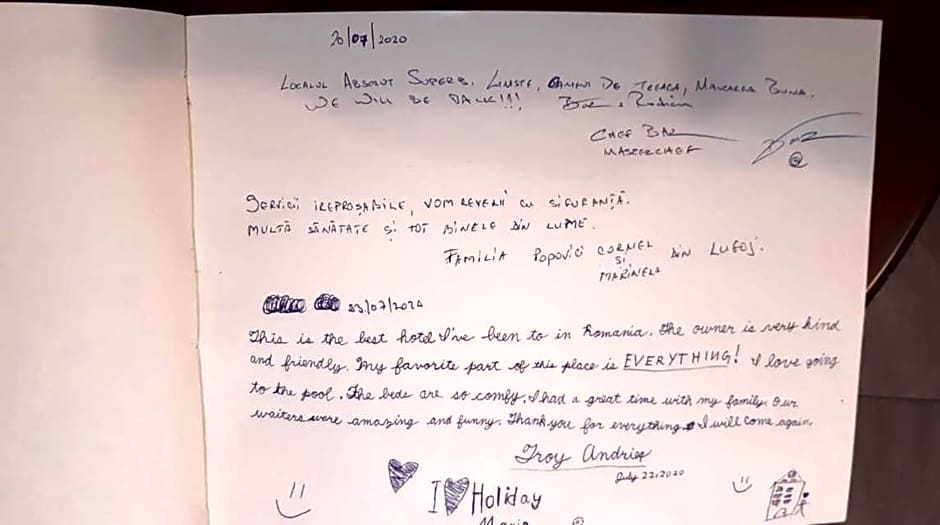 20/07/2020
LOCALUL ABSOLUT SUPERB. LINISTE, OAMENI DE TREABA, MANCAREA BUNA.
WE WILL BE BACK!!!
CHEF BAZ
MASTERCHEF
SERVICII IREPROȘABILE, VOM REVENII CU SIGURANȚĂ.
MULTĂ SĂNĂTATE ȘI TOT BINELE DIN LUME.
FAMILIA POPOVICI CORNEL ȘI MARINELA DIN LUGOJ.
23/07/2020
This is the best hotel I've been to in Romania. The owner is very kind
and friendly. My favorite part of this place is EVERYTHING! I love going
to the pool. The beds are so comfy. I had a great time with my family. Our
waiters were amazing and funny. Thank you for everything I will come again.
Troy Andries
July 22, 2020
I Holiday
Maria